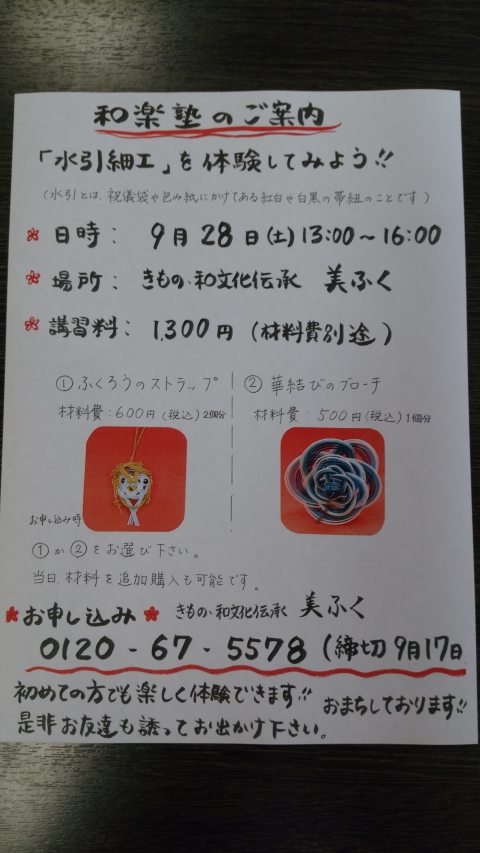 和楽塾のご案内
「水引細工」を体験してみよう!!
(水引とは、祝儀袋や包み紙にかけてある紅白や白黒の帯紐のことです)
日時: 9月28日(土)13:00~16:00
場所: きもの・和文化伝承 美ふく
講習料: 1,300円 (材料費別途)
①ふくろうのストラップ
材料費:600円(税込)2個分
②華結びのブローチ
材料費:500円(税込)1個分
お申し込み時
①か②をお選び下さい。
当日、材料を追加購入も可能です。
お申し込み きもの・和文化伝承 美ふく
0120-67-5578 (締切 9月17日
初めての方でも楽しく体験できます!!
おまちしております!!
是非お友達も誘ってお出かけ下さい。